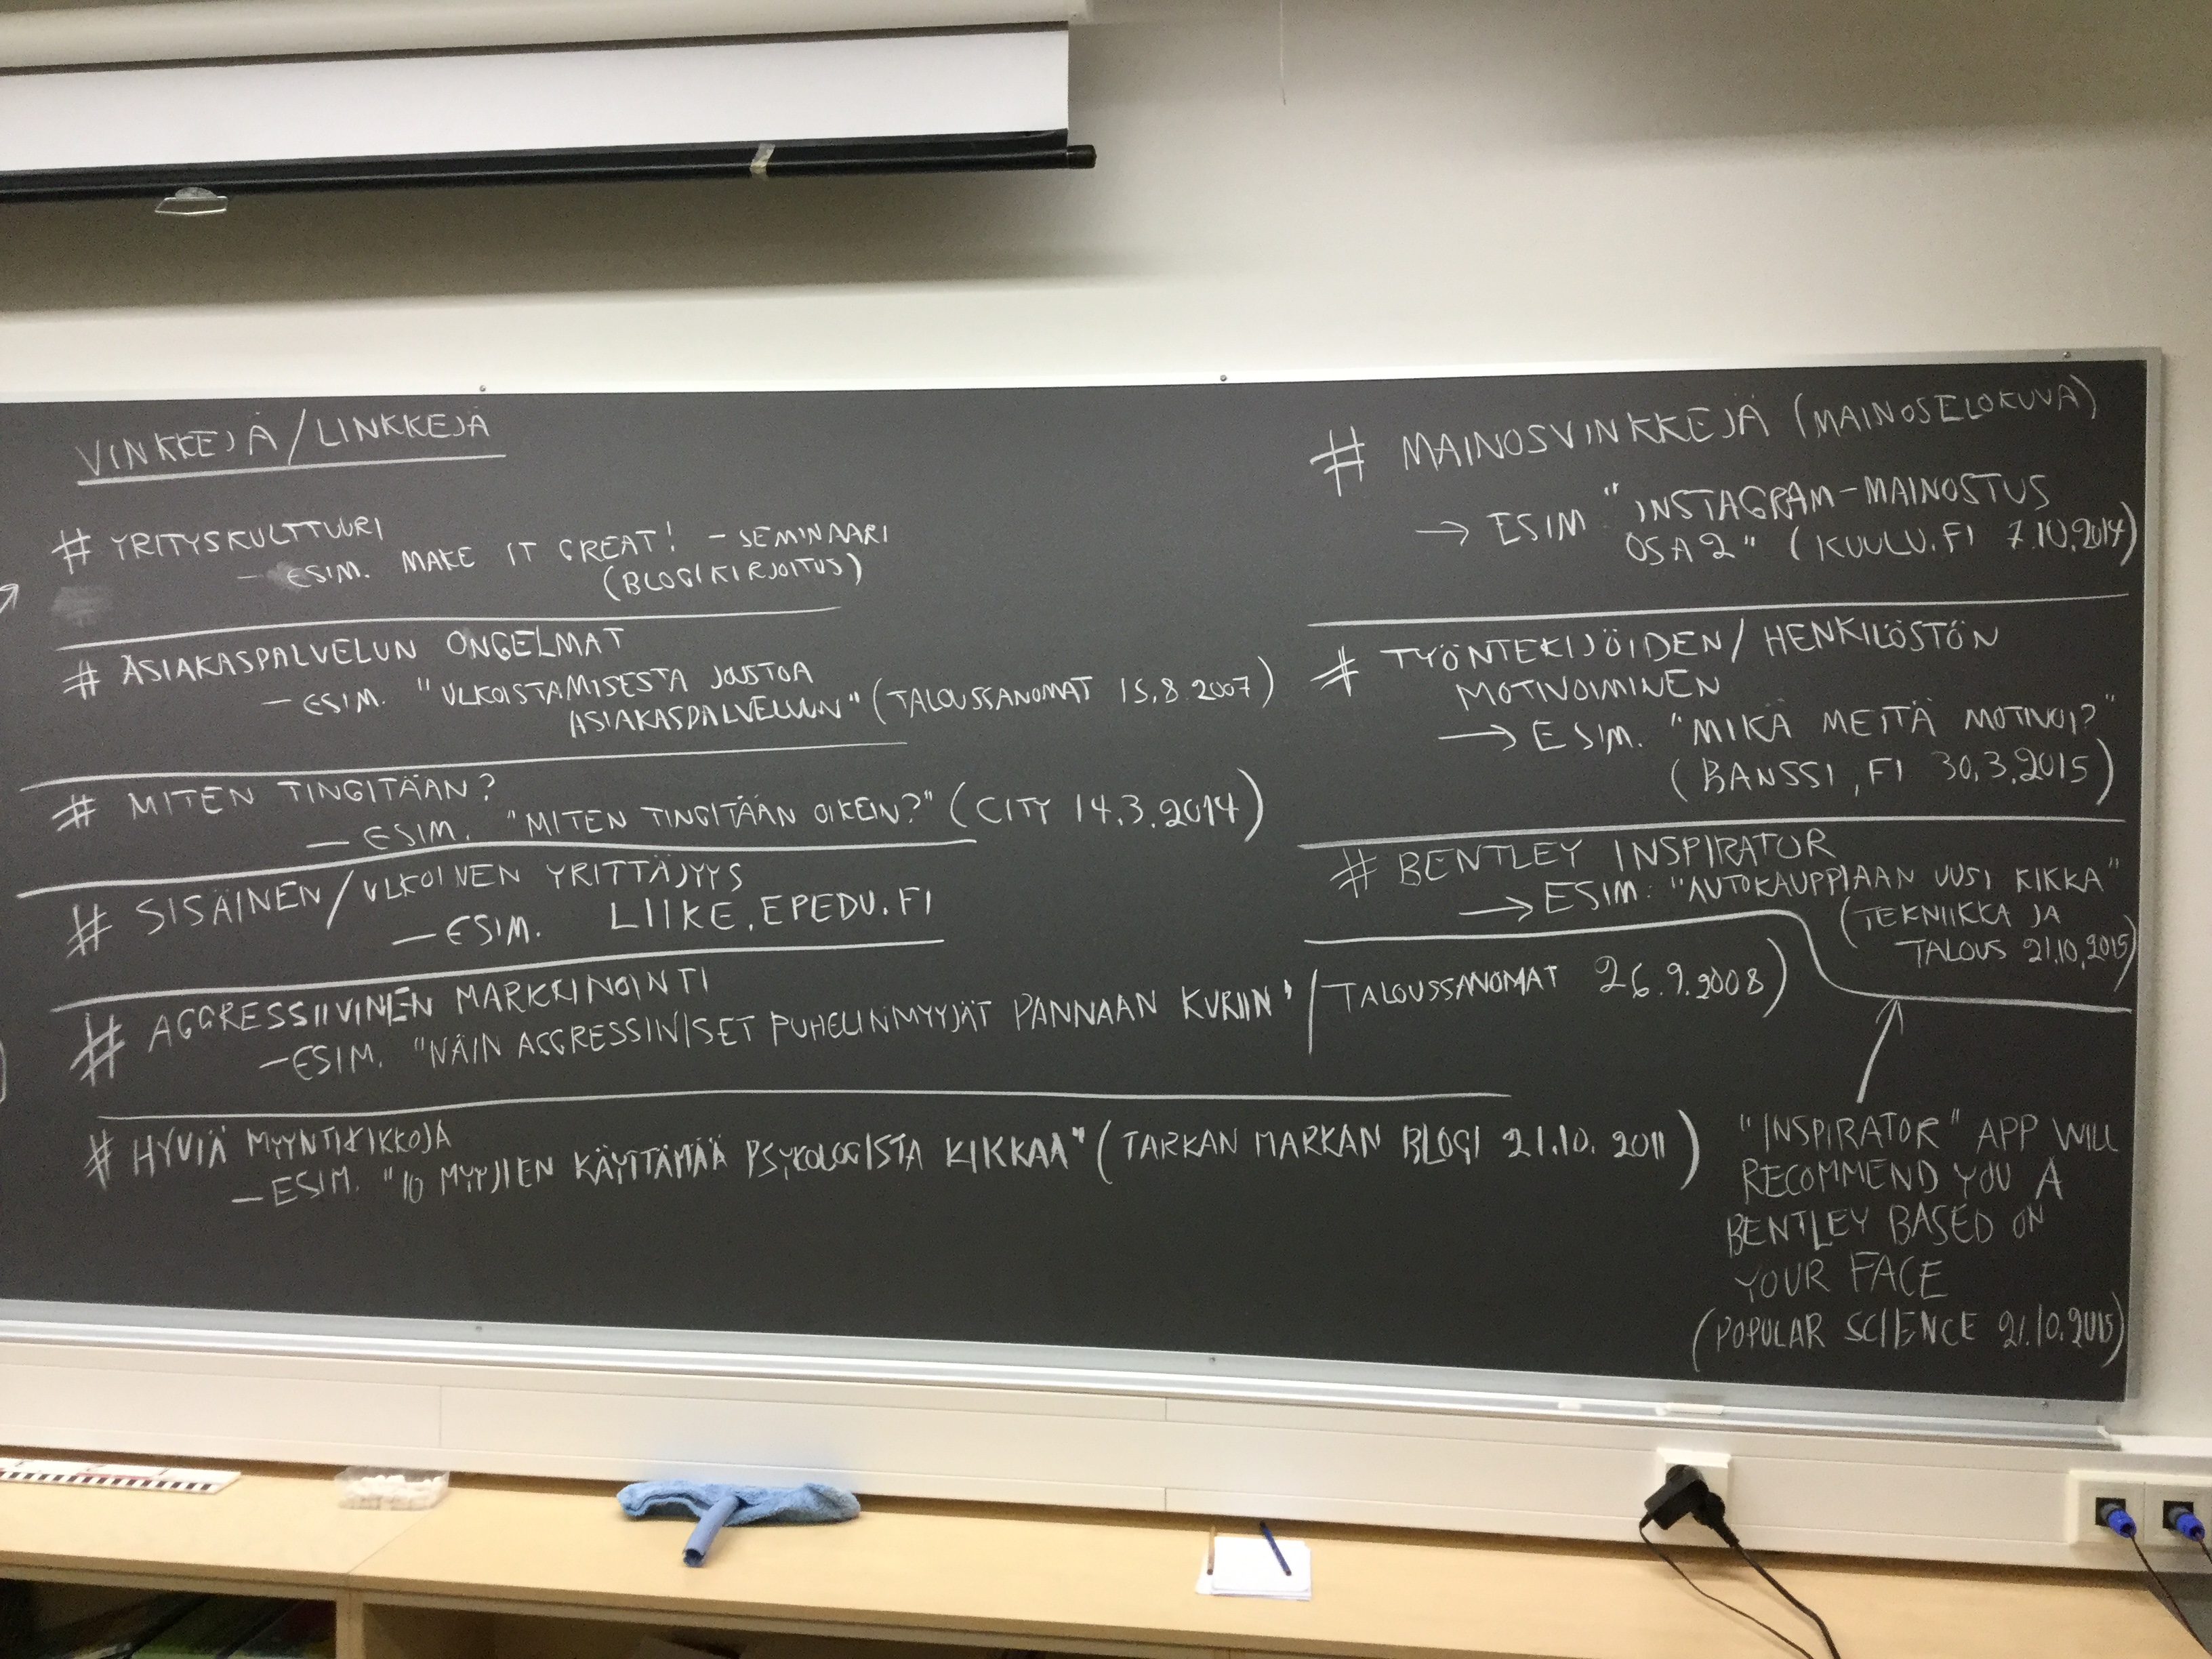 VINKKEJÄ/LINKKEJÄ
# YRITYSKULTTUURI
- ESIM. MAKE IT GREAT! - SEMINAARI
(BLOGIKIRJOITUS)
# ASIAKASPALVELUN ONGELMAT
- ESIM. "ULKOISTAMISESTA JOUSTOA
ASIAKASPALVELUUN" (TALOUSSANOMAT 15.8.2007)
# MITEN TINGITÄÄN?
- ESIM. "MITEN TINGITÄÄN OIKEIN?" (CITY 14.3.2014)
# SISÄINEN/ULKOINEN YRITTÄJYYS
- ESIM. LIIKE.EPEDU.FI
# AGGRESSIIVINEN MARKKINOINTI
- ESIM. "NÄIN AGGRESSIIVISET PUHELINMYYJÄT PANNAAN KURIIN" (TALOUSSANOMAT 26.9.2008)
# HYVIÄ MYYNTIKIKKOJA
- ESIM. "10 MYYJIEN KÄYTTÄMÄÄ PSYKOLOGISTA KIKKAA" (TARKAN MARKAN BLOGI 21.10.2011)
# MAINOSVINKKEJÄ (MAINOSELOKUVA)
→ ESIM "INSTAGRAM-MAINOSTUS
OSA 2" (KUULU.FI 7.10.2014)
# TYÖNTEKIJÖIDEN/HENKILÖSTÖN
MOTIVOIMINEN
→ ESIM. "MIKÄ MEITÄ MOTIVOI?"
(BANSSI.FI 30.3.2015)
# BENTLEY INSPIRATOR
→ ESIM. "AUTOKAUPPIAAN UUSI KIKKA"
(TEKNIIKKA JA
TALOUS 21.10.2015)
"INSPIRATOR" APP WILL
RECOMMEND YOU A
BENTLEY BASED ON
YOUR FACE
(POPULAR SCIENCE 21.10.2015)